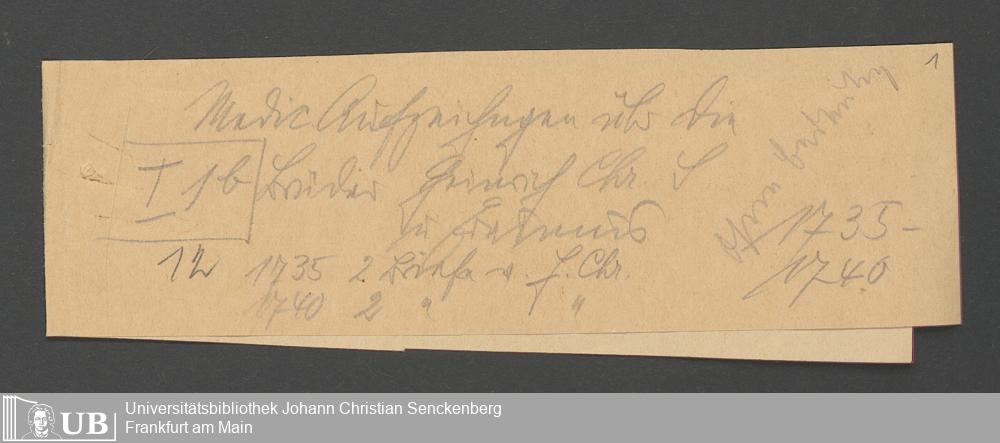 1
Medic Aufzeichnungen über die
I 1b Brüder Heinrich Chr. S
u Erasmus
1735-
1740
12 1735 2 Briefe v. J. Chr.
1740 2 " "
UB Universitätsbibliothek Johann Christian Senckenberg
Frankfurt am Main